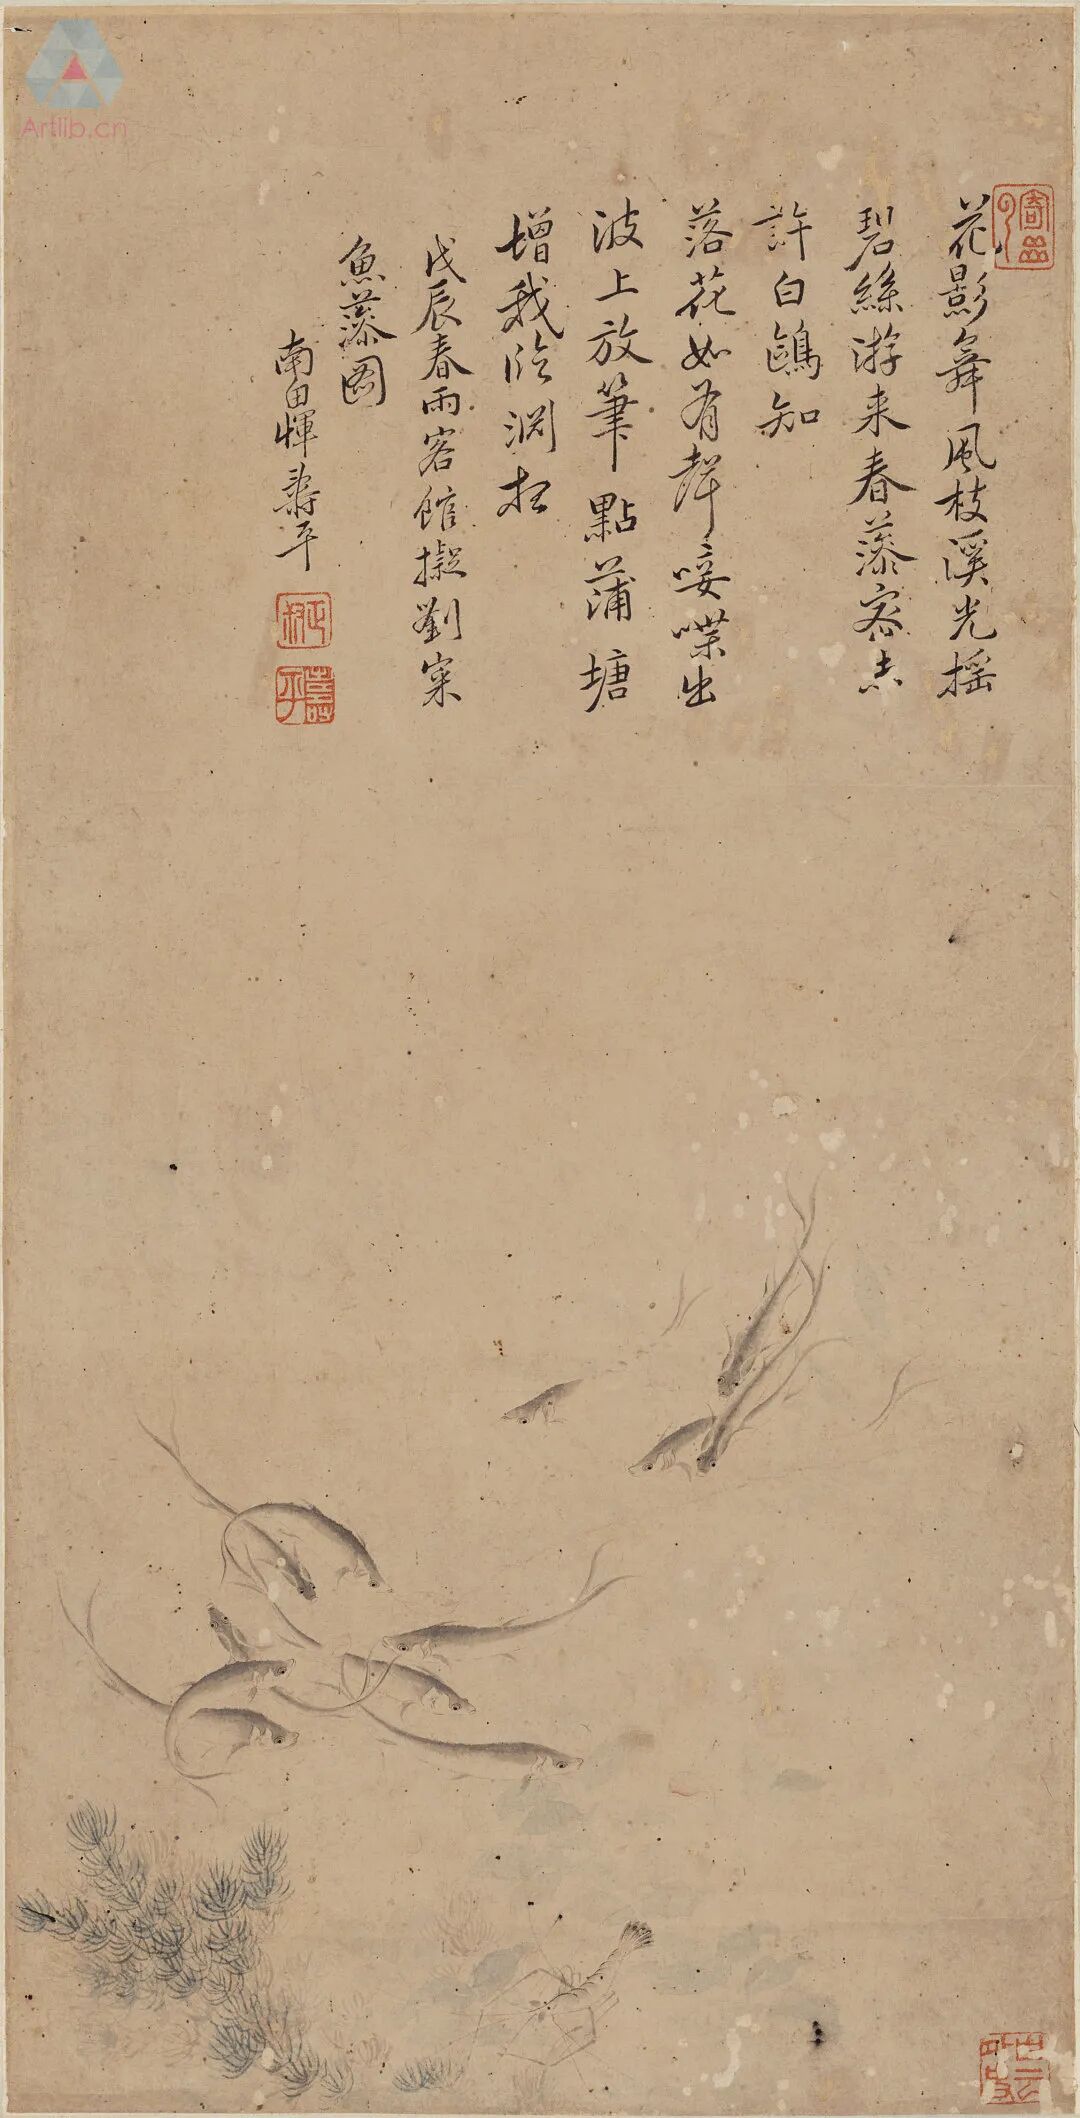 花影舞風枝溪光摇
碧絲游来春藻密未
許白鷗知
落花如有聲唼喋出
波上放筆點蒲塘
增我臨淵想
戊辰春雨客館擬劉寀
魚藻图
南田惲壽平
壽平
Artlib.cn